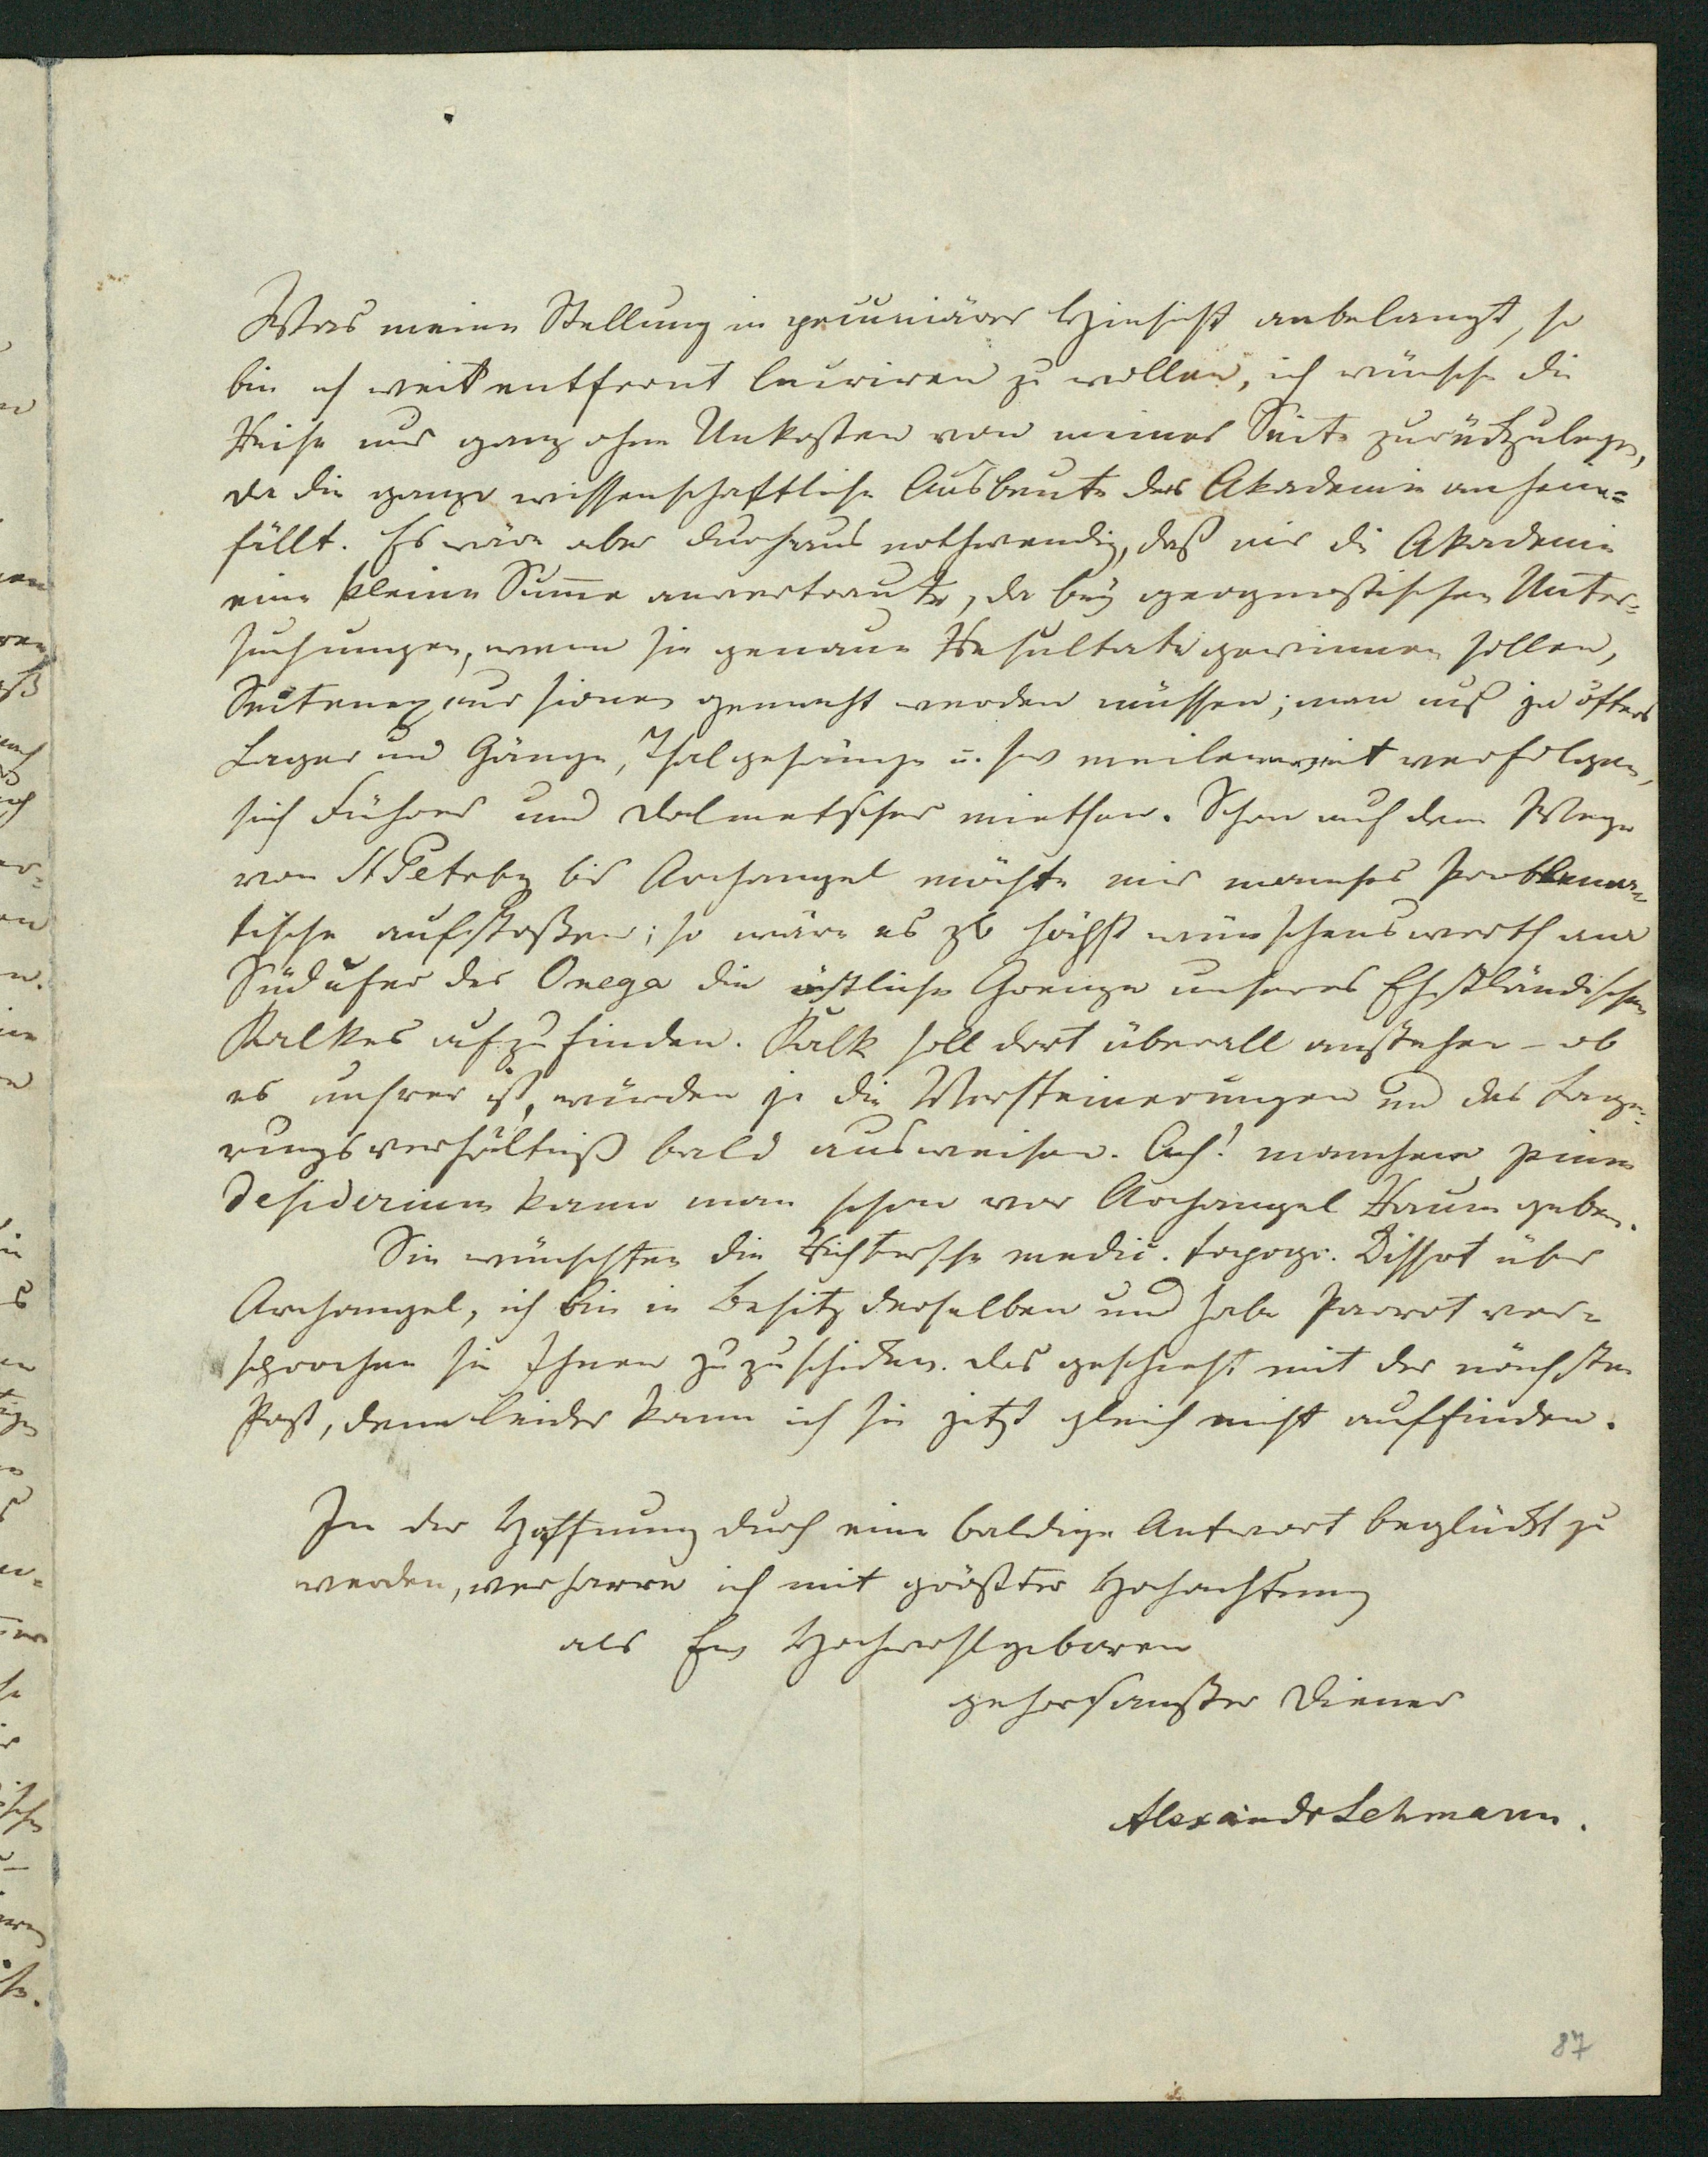 Was meine Stellung in pecuniärer Hinsicht anbelangt, so
bin ich weit entfernt lucriren zu wollen, ich wünsche die
Reise nur ganz ohne Unkosten von meiner Seite zurückzulegen,
da die ganze wissenschaftliche Ausbeute der Akademie anheim=
fällt. Es wäre aber durchaus nothwendig, daß mir die Akademie
eine kleine Summe anvertraute, da bey geognostischen Unter=
suchungen, wenn sie genaue Resultate gewinnen sollen,
Seitenexcursionen gemacht werden müssen; man muß ja öfters
Lager und Gänge, Thalgehänge u. sw meilenweit verfolgen,
sich Führer und Dolmetscher miethen. Schon auf dem Wege
von St Petrbg bis Archangel möchte mir manches Problema=
tische aufstoßen; so wäre es zb höchst wünschenswerth am
Südufer des Onega die östliche Grenze unseres Ehstländischen
Kalkes aufzufinden. Kalk soll dort überall anstehen – ob
es unsrer ist, würden ja die Versteinerungen und das Lage=
rungsverhältniß bald ausweisen. Ach! manchem pium
desiderium kann man schon vor Archangel Raum geben.
Sie wünschten die Richtersche medic. topogr. Dissert über
Archangel, ich bin in Besitz derselben und habe Parrot ver=
sprochen sie Ihnen zuzuschicken. Das geschieht mit der nächsten
Post, denn leider kann ich sie jetzt gleich nicht auffinden.
In der Hoffnung durch eine baldige Antwort beglückt zu
werden, verharre ich mit größter Hochachtung
als Ew Hochwohlgeboren
gehorsamster Diener
Alexander Lehmann.
87